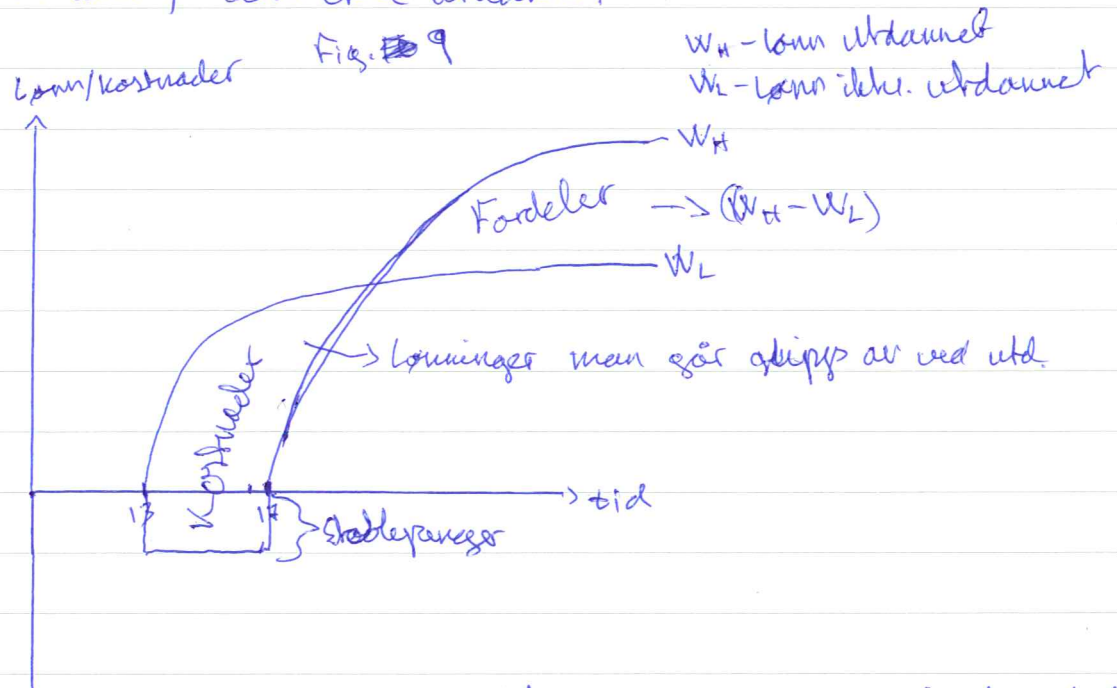 Fig. 9
W_H - lønn utdannet
W_L - lønn ikke. utdannet
Lønn/kostnader
W_H
Fordeler -> (W_H - W_L)
W_L
-> Lønninger man går glipp av ved utd.
Kostnader
13
17
-> tid
Skolepenger